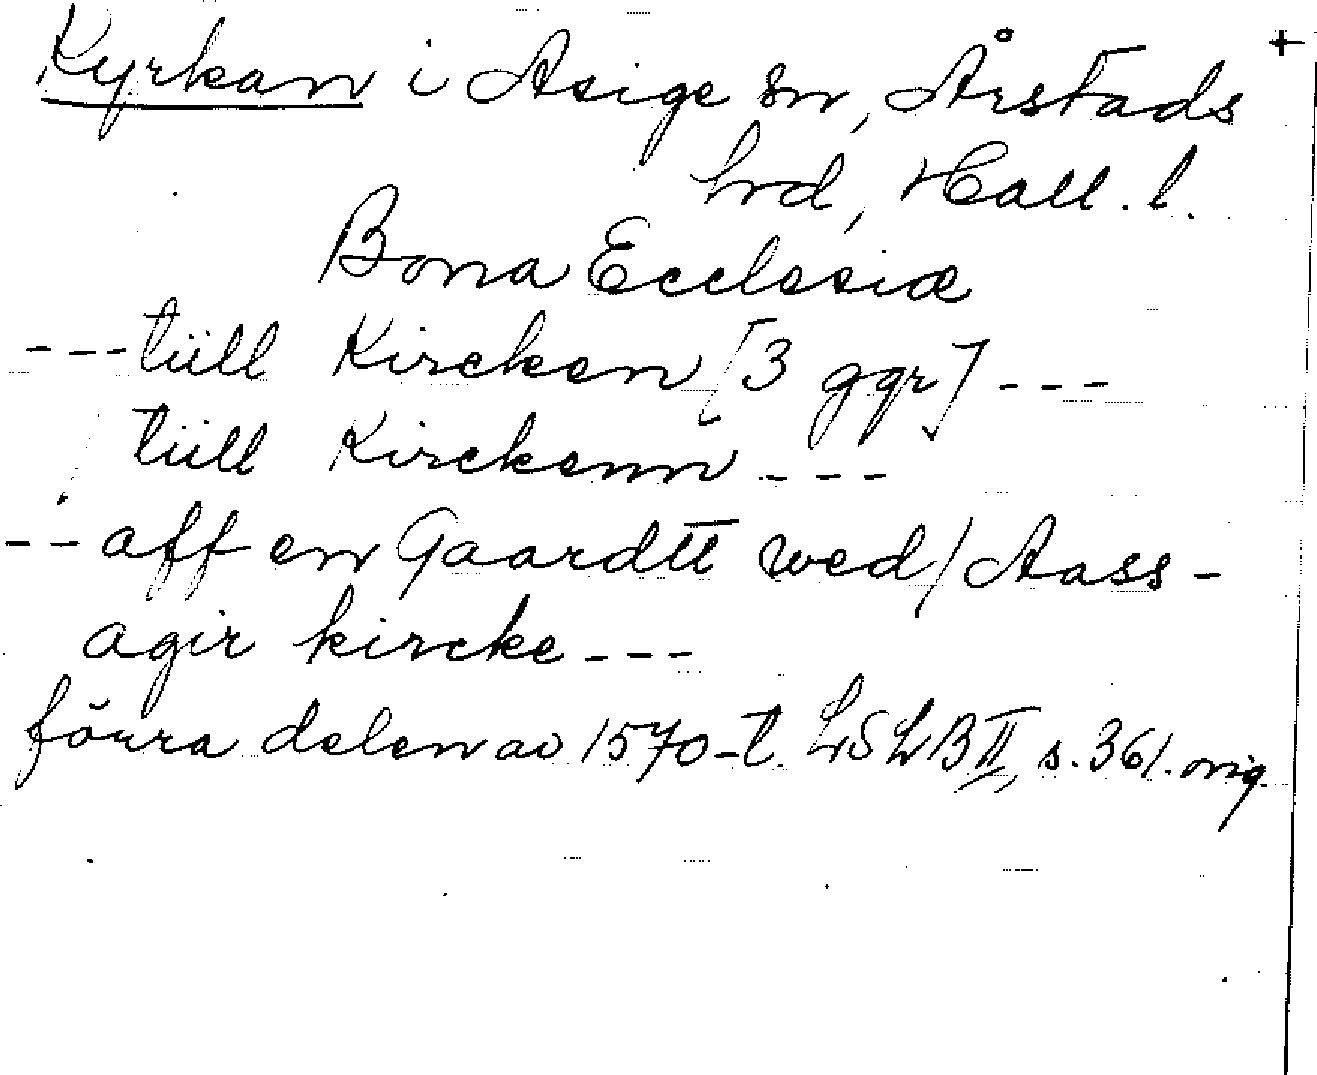 Kyrkan i Asige sn, Årstads +
hrd, Hall. l.
Bona Ecclesiæ
---tüll Kircken [3 ggr] ---
tüll Kirckenn ---
-- aff en Gaardtt wed / Aass-
agir kircke ---
förra delen av 1570-t. LSLB II, s. 361. orig.